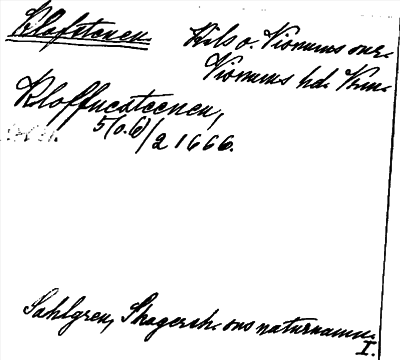 Klofstenen.
Kils o. Visnums
Visnums hd. Vrm.
Kloffuesteenen,
5 (o. 6)/2 1666.
Sahlgren, Skagersh. ons naturnamn.
I.